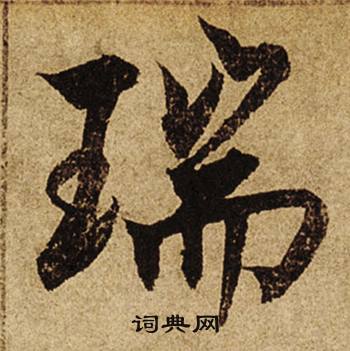 瑞
词典网